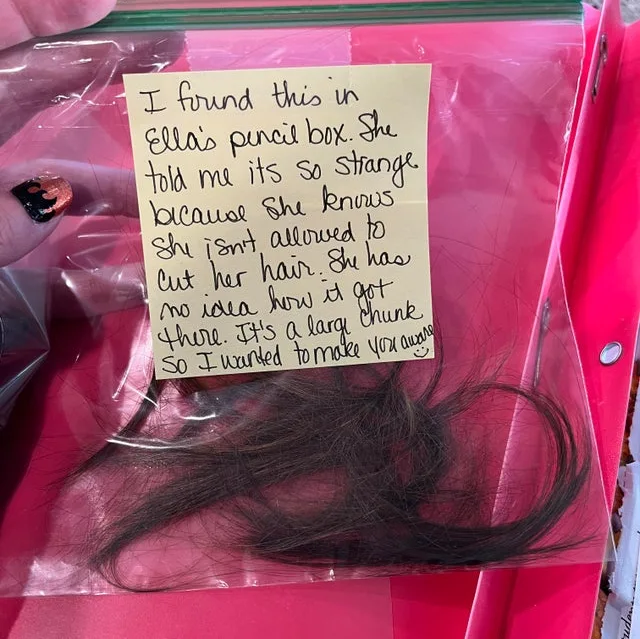 I found this in
Ella's pencil box. She
told me its so strange
because she knows
she isn't allowed to
cut her hair. She has
no idea how it got
there. It's a large chunk
so I wanted to make you aware
:)